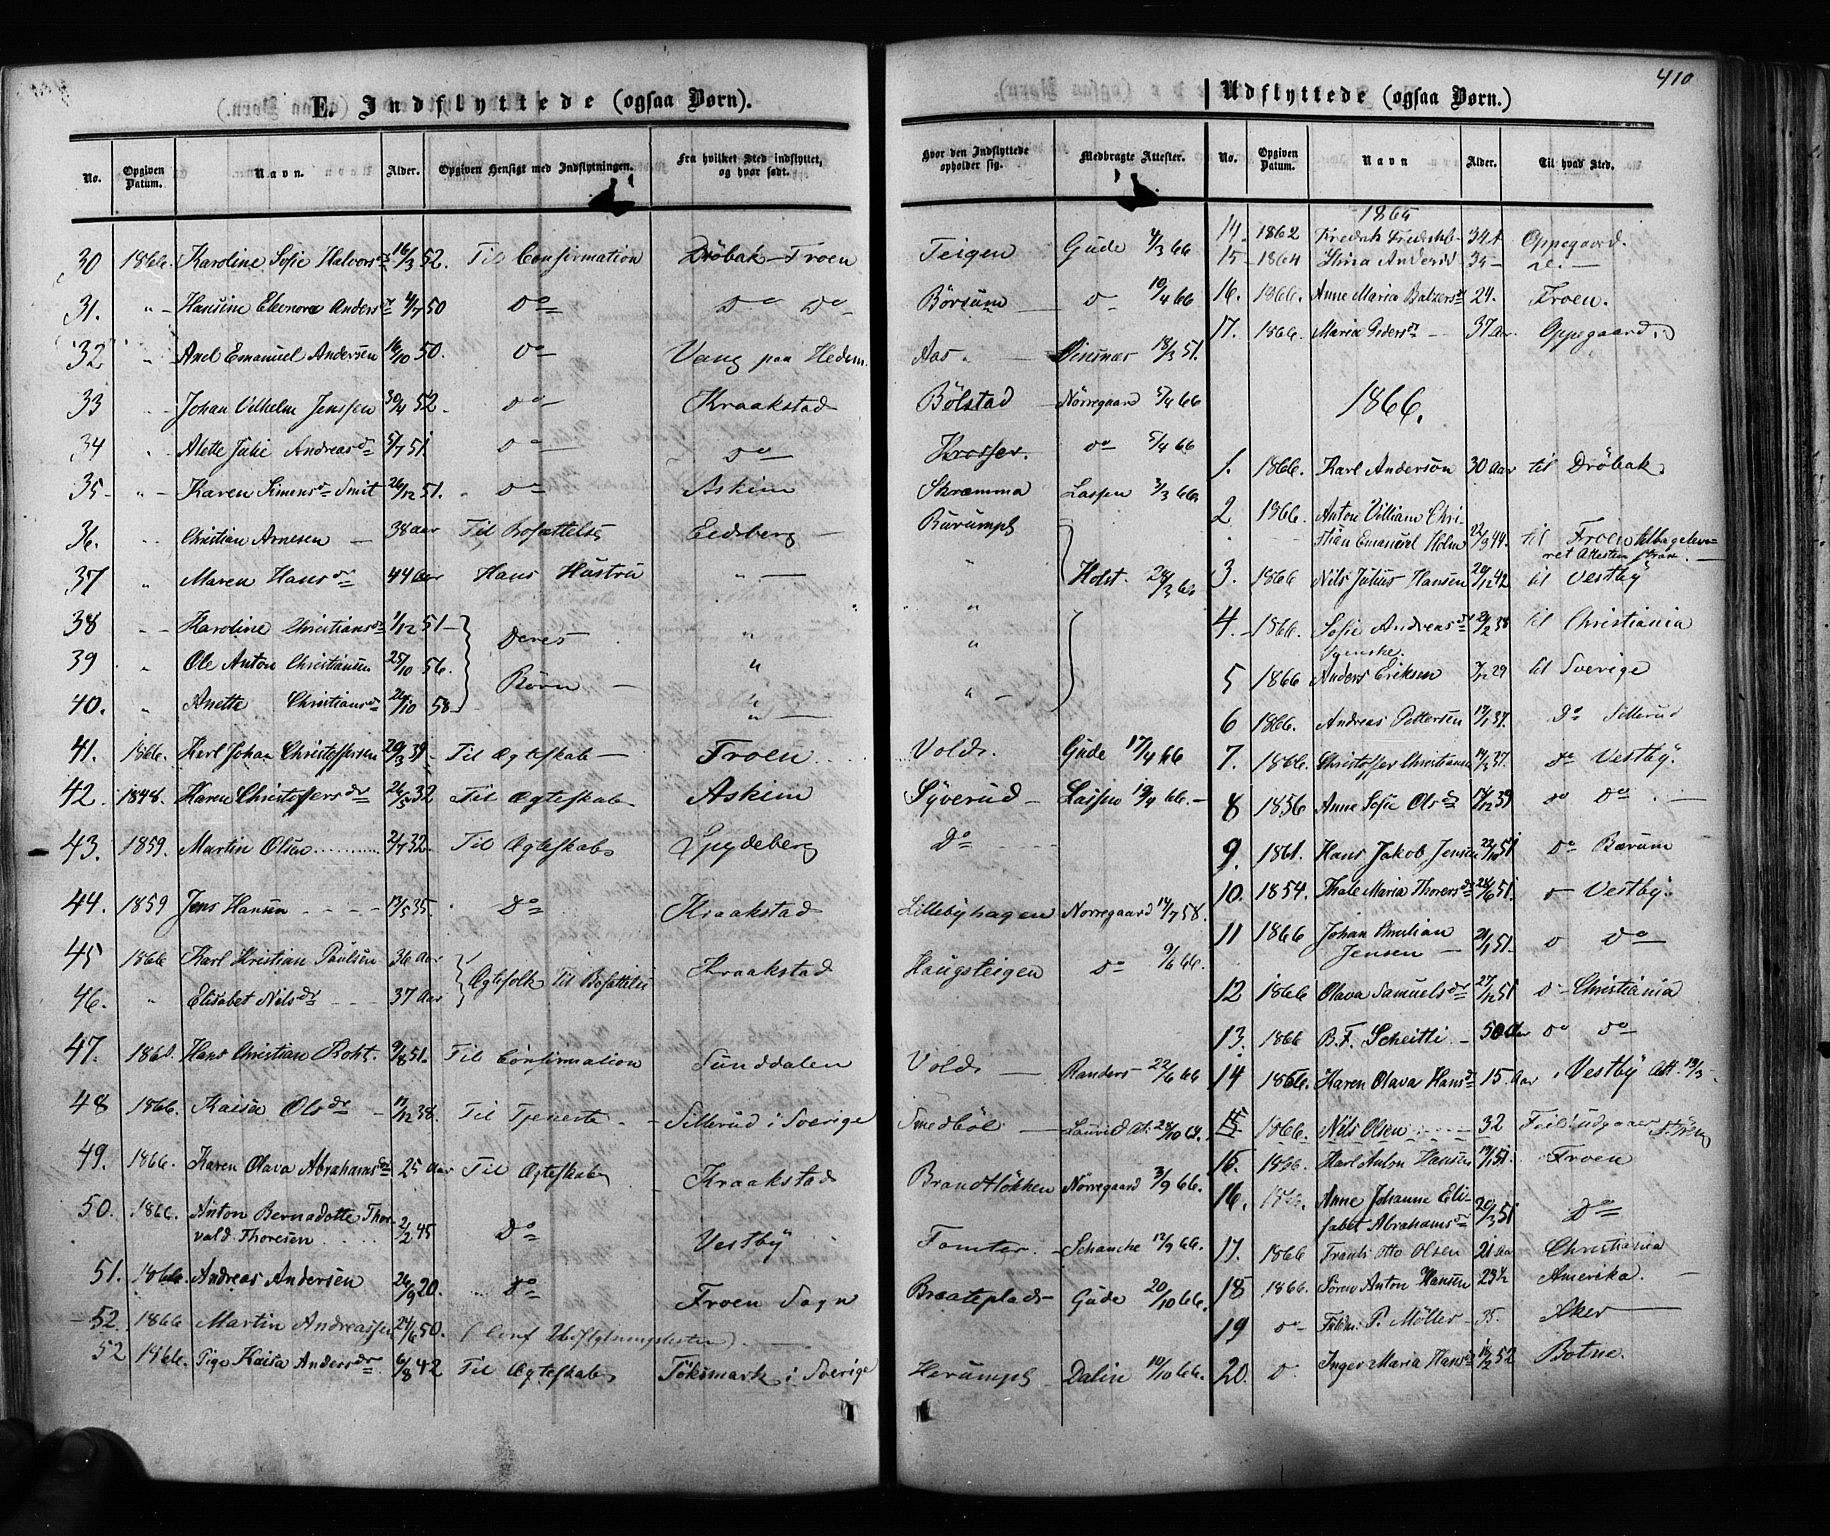 410
E. Indflyttede (ogsaa Børn).
No. | Opgiven Datum. | Navn. | Alder. | Opgiven Hensigt med Indflytningen. | Fra hvilket Sted indflyttet, og hvor født. | Hvor den Indflyttede opholder sig. | Medbragte Attester.
30 1866. Karoline Sofie Halvorsdr 16/3 52. Til Confirmation Drøbak - Froen Teigen Gude 4/3 66
31. " Hansine Eleonora Andersdr 4/7 50 Do Do Do Børsum Do 10/4 66
32. " Axel Emanuel Andersen 16/10 50. Do Vang paa Hedem. Aas 18/3 51.
33 " Johan Vilhelm Jenssen 30/4 52. Do Kraakstad Bølstad Nørregaard 5/4 66
34 " Alette Julie Andreasdr 5/7 51 Do Do Krosser. Do 5/4 66
35 " Karen Simensdr Smit 26/12 51. Do Askim Skramma Lassen 3/3 66
36. " Christian Arnesen 38 aar Til Bosættelse Eidsberg Burumpl
37 " Maren Hansdr 44 aar Hans Hustru " " Holst. 28/3 66
38 " Karoline Christiansdr 1/12 51 Deres " "
39 " Ole Anton Christiansen 25/10 56. Børn " "
40. " Anette Christiansdr 26/10 58 " "
41. 1866. Karl Johan Christoffersen 20/3 39 Til Ægteskab Froen Volds. Gude 17/4 66
42. 1848. Karen Christoffersdr 26/5 32 Til Ægteskab Askim Syverud Lassen 19/4 66.
43. 1859. Martin Olsen 2/7 32. Til Ægteskab Spydeberg Do
44. 1859 Jens Hansen 13/5 35. Do Kraakstad Lillebyhagen Nørregaard 14/7 58.
45 1866 Karl Kristian Paulsen 36 aar Ægtefolk Til Bosættelse Kraakstad Haugsteigen Do 9/6 66.
46. " Elisabet Nilsdr 37 aar
47. Hans Christian Roht. 9/8 51. Til Confirmation Sunddalen Volds Randers 22/6 66
48 1866. Kaisa Olsdr 38. Til Tjeneste Sillerud i Sverige Smedbøl
49. 1866. Karen Olava Abrahamsdr 25 aar Til Ægteskab Kraakstad Brandtløkken Nørregaard 3/9 66.
50. 1866. Anton Bernadotte Thorvald Thoresen 2/2 45 Do Vestby Tomter Schanche 12/9 66.
51. 1866. Andreas Andersen 26/9 20. Do Froen Sogn Braateplads Gude 20/10 66.
52. 1866 Martin Andreassen 24/6 50.
52 1866. Pige Kaisa Andersdr 6/8 42 Til Ægteskab Töksmark i Sverige Harumpl Dalin 10/10 66.
Udflyttede (ogsaa Børn.)
No. | Opgiven Datum. | Navn | Alder. | Til hvad Sted.
1865
14. 1862 34 Oppegaard.
15 1864 Stina Andersd
16. 1866. Anne Maria Baltzersdr 24. Froen.
17. 1866. Maria Pedersdr 37 aar Oppegaard.
1866.
1. 1866. Karl Anderson 30 aar til Drøbak
2 1866. Anton Villiam Christian Emanuel Holm 22/9 44. til Froen
3. 1866 Nils Julius Hansen 20/12 42 til Vestby
4. 1866. Sofie Andreasdr til Christiania
Svenske.
5 1866 Anders Eriksen 29 til Sverige
6 1866. Andreas Pettersen 37. Do Sillerud
7. 1866. Christoffer Christiansen 37. Do Vestby.
8 1856 Anne Sofie Olsdr 18/12 39 Do Do
9. 1861. Hans Jakob Jensen 22/10 51 Do Bærum
10. 1854. Thale Maria Thorersdr 28/6 51. Do Vestby.
11 1866 Johan Christian Jensen 21/1 51. Do Do
12 1866 Olava Samuelsdr 27/12 51 Do Christiania
13. 1866 B. F. Scheitli 50 aar Do Do
14 1866. Karen Olava Hansdr 15 aar Vestby Att. 19/3
15 1866. Nils Olsen 32
15. 1866. Karl Anton Hansen 51 Froen
16. 1866. Anne Johanne Elisabet Abrahamsdr 20/3 51 Do
17. 1866 Frants Otto Olsen 21 aar Christiania
18 1866. Søren Anton Hansen 23½ Amerika.
19 Do P. Møller 35. Aker
20. Do Inger Maria Hansdr 18/2 52 Botne.